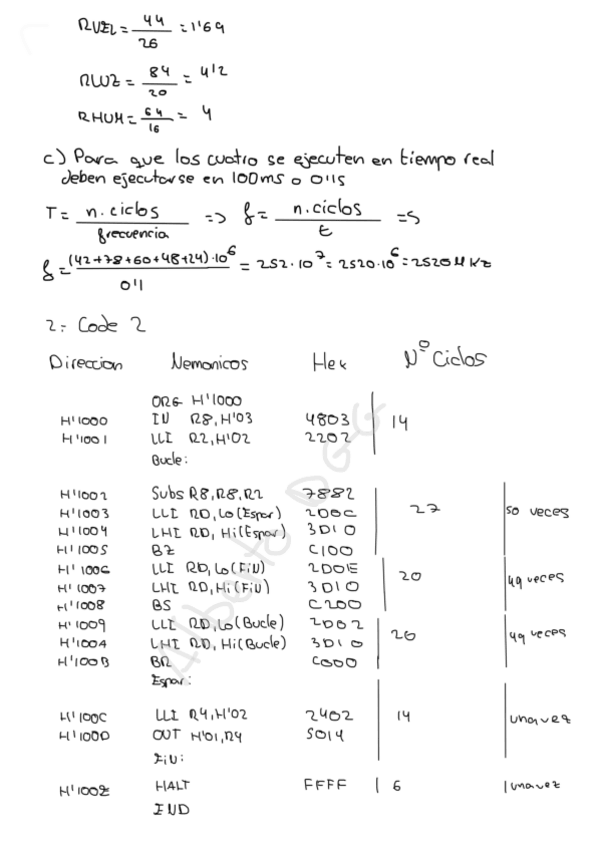 RVEL = 44/26 = 1'69
RLUZ = 84/20 = 4'2
RHUM = 64/16 = 4
c) Para que los cuatro se ejecuten en tiempo real
deben ejecutarse en 100ms o 0'1s
T = n. ciclos/frecuencia => f = n. ciclos/t =s
f = (42+78+60+48+24)·10^6/0'1 = 252·10^7 = 2520·10^6 = 2520 MHz
2.- Code 2
Direccion Nemonicos Hex Nº Ciclos
ORG H'1000
H'1000 IN R8, H'03 4803 14
H'1001 LLI R2, H'02 2202
Bucle:
H'1002 Subs R8, R8, R2 7882
H'1003 LLI RD, Lo(Espar) 2D0C 27 50 veces
H'1004 LHI RD, Hi(Espar) 3D10
H'1005 BZ C100
H'1006 LLI RD, Lo(FiN) 2D0E 20 49 veces
H'1007 LHI RD, Hi(FiN) 3D10
H'1008 BS C200
H'1009 LLI RD, Lo(Bucle) 2D02 20 49 veces
H'100A LHI RD, Hi(Bucle) 3D10
H'100B BR C000
Espar:
H'100C LLI R4, H'02 2402 14 una vez
H'100D OUT H'01, R4 5014
FiN:
H'100E HALT FFFF 6 una vez
END
Alberto DGG